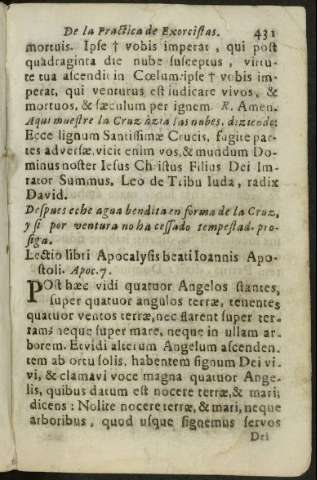 De la Practica de Exorcistas. 431
mortuis. Ipse † vobis imperat, qui post
quadraginta die nube susceptus, virtu-
te tua ascendit in Cœlum: ipse † vobis im-
perat, qui venturus est iudicare vivos, &
mortuos, & sæculum per ignem. R. Amen.
Aqui muestre la Cruz àzia las nubes, diziendo:
Ecce lignum Santissimæ Crucis, fugite par-
tes adversæ, vicit enim vos, & mundum Do-
minus noster Iesus Christus Filius Dei Im-
rator Summus, Leo de Tribu Iuda, radix
David.
Despues eche agua bendita en forma de la Cruz,
y si por ventura no ha cessado tempestad, pro-
siga.
Lectio libri Apocalypsis beati Ioannis Apo-
stoli. Apoc. 7.
POst hæc vidi quatuor Angelos stantes,
super quatuor angulos terræ, tenentes
quatuor ventos terræ, nec flarent super ter-
ram: neque super mare, neque in ullam ar-
borem. Et vidi alterum Angelum ascenden-
tem ab ortu solis, habentem signum Dei vi-
vi, & clamavi voce magna quatuor Ange-
lis, quibus datum est nocere terræ, & mari;
dicens: Nolite nocere terræ, & mari, neque
arboribus, quod usque signemus servos
Dei